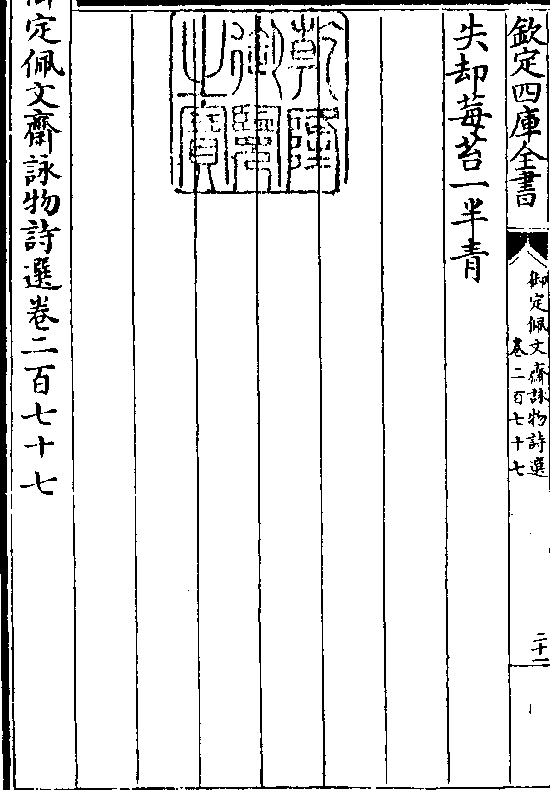 欽定四庫全書
御定佩文齋詠物詩選
卷二百七十七
二十一
失却莓苔一半青
乾隆御覽之寶
御定佩文齋詠物詩選卷二百七十七